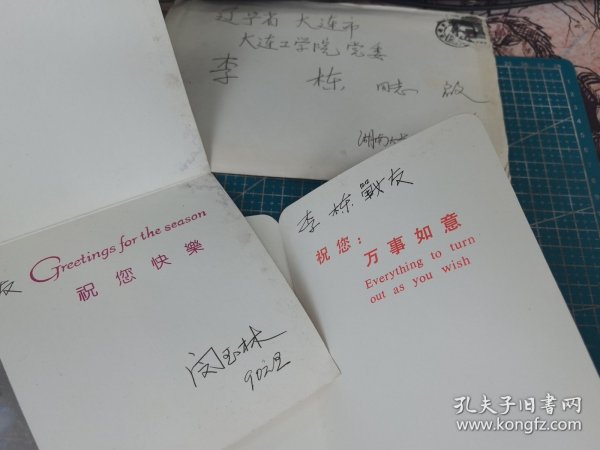 辽宁省 大连市
大连工学院 党委
李 栋 同志 啟
湖南
友
Greetings for the season
祝您快樂
闵玉林
李栋戰友
祝您：
万事如意
Everything to turn
out as you wish
孔夫子旧书网
www.kongfz.com